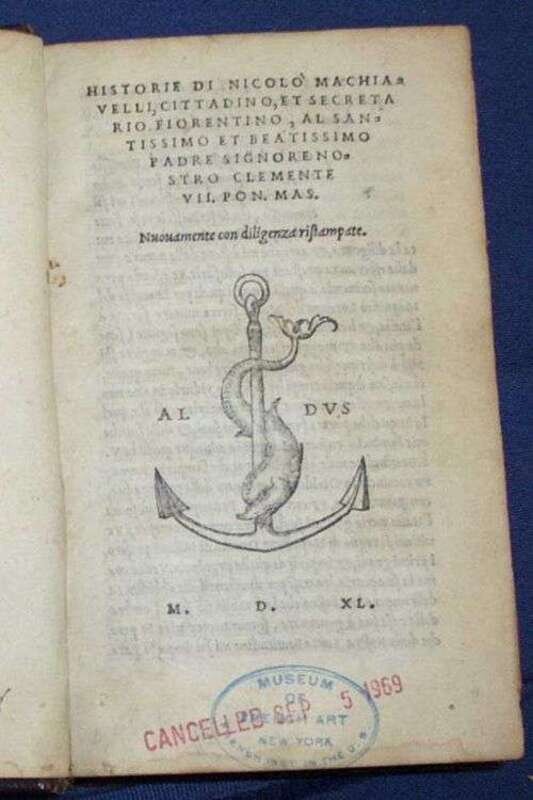 HISTORIE DI NICOLO' MACHIA=
VELLI, CITTADINO, ET SECRETA
RIO FIORENTINO, AL SAN=
TISSIMO ET BEATISSIMO
PADRE SIGNORE NO=
STRO CLEMENTE
VII. PON. MAS.
Nuouamente con diligenza ristampate.
AL DVS
M. D. XL.
MUSEUM
OF
FRENCH ART
NEW YORK
FRENCH INST. IN THE U.S.
CANCELLED SEP 5 1969